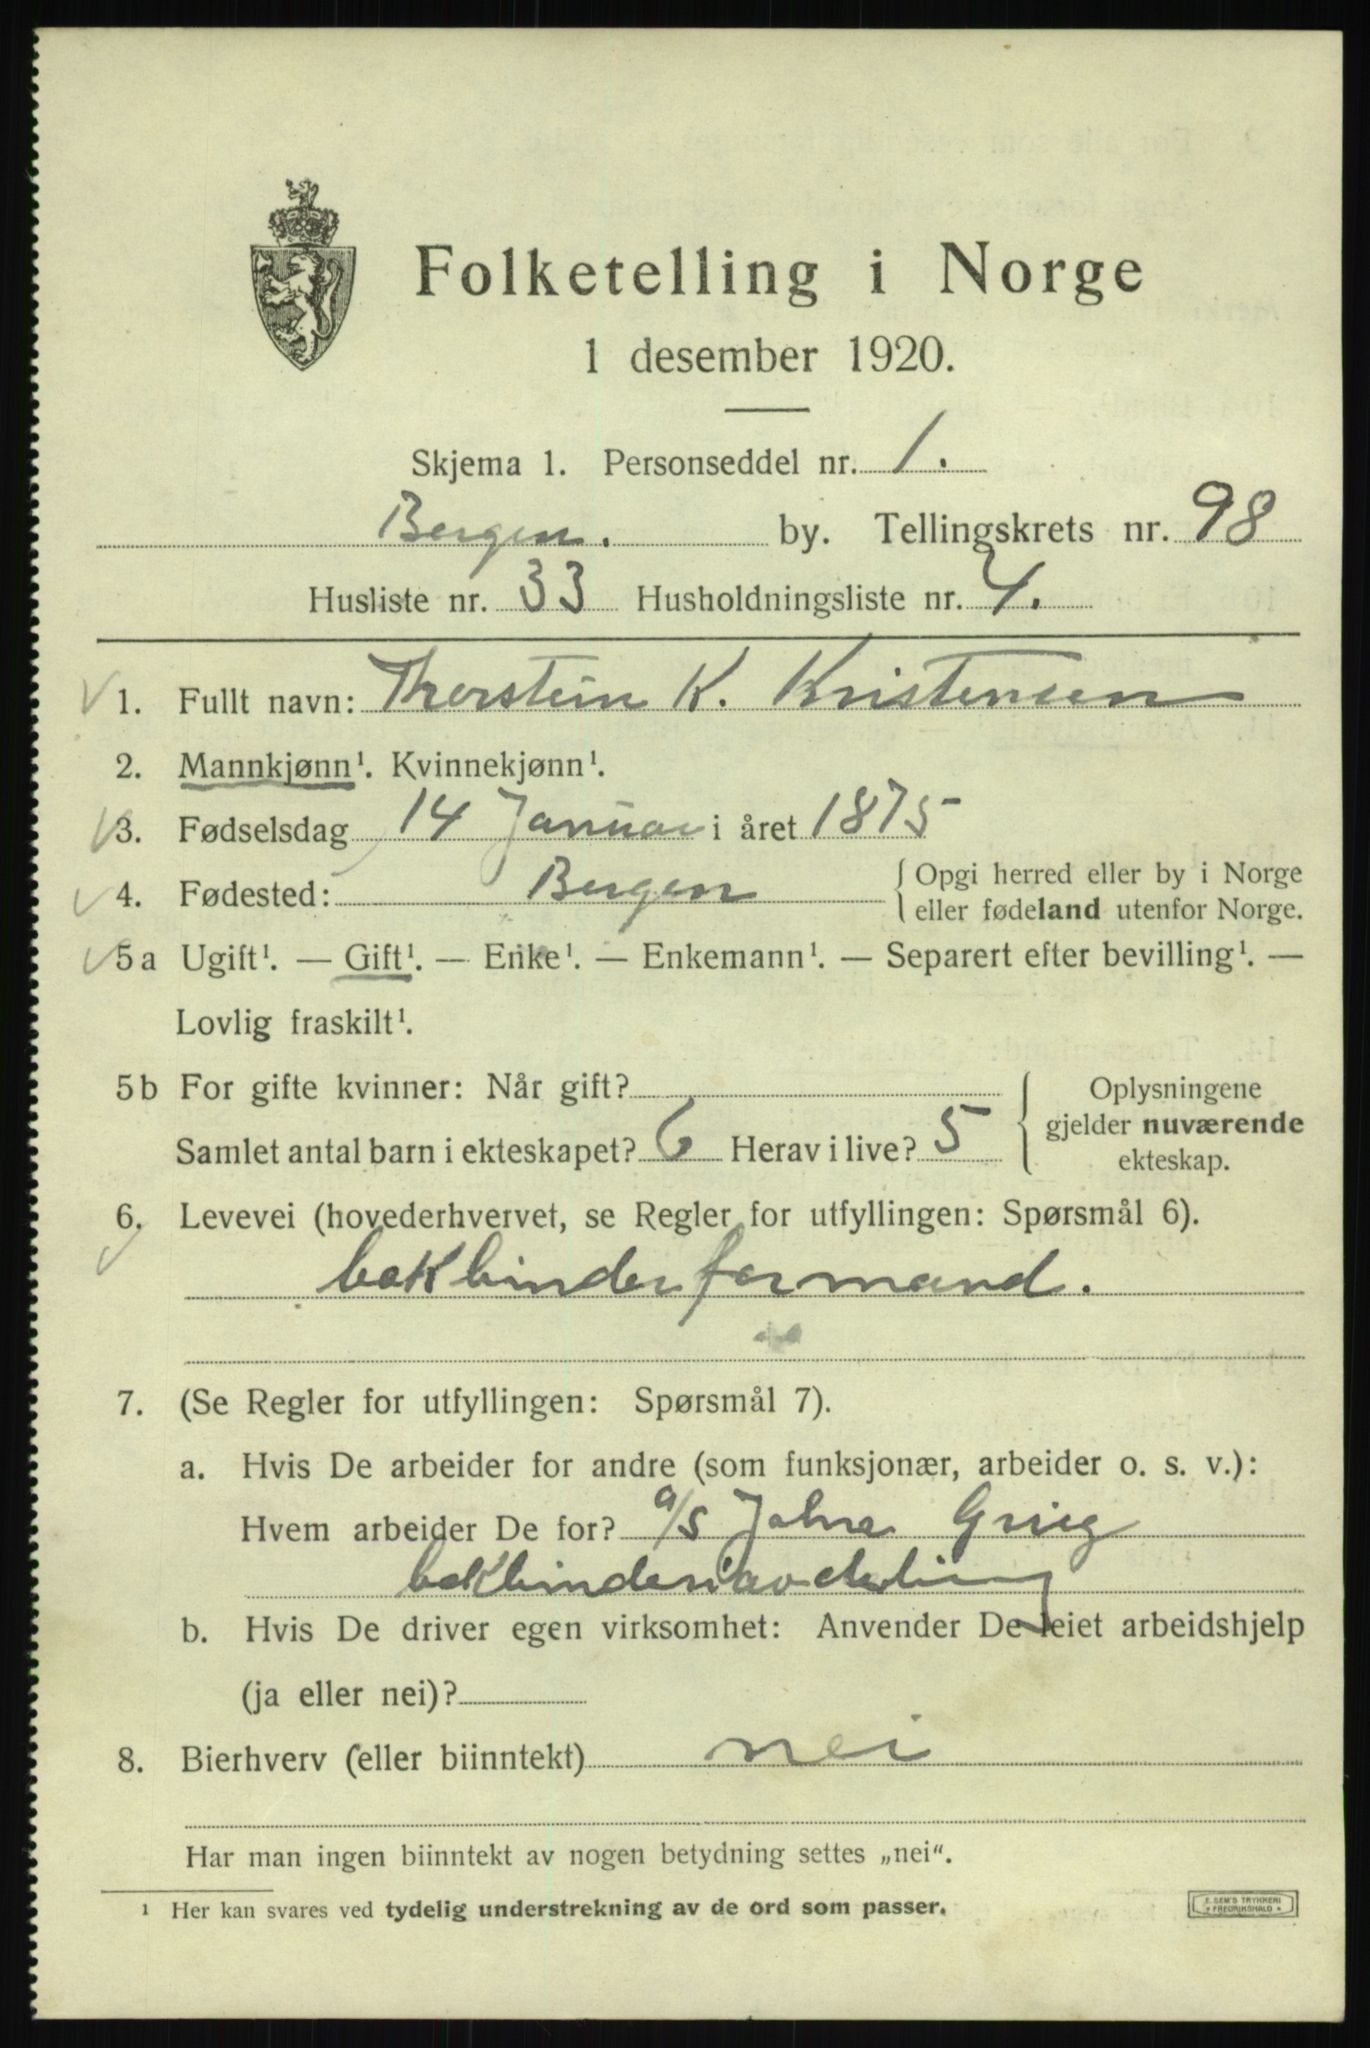 Folketelling i Norge
1 desember 1920.
Skjema 1. Personseddel nr. 1.
Bergen. by. Tellingskrets nr. 98
Husliste nr. 33 Husholdningsliste nr. 4.
1. Fullt navn: Thorstein K. Kristensen
2. Mannkjønn¹. Kvinnekjønn¹.
3. Fødselsdag 14 Januar i året 1875
4. Fødested: Bergen { Opgi herred eller by i Norge
eller fødeland utenfor Norge.
5a Ugift¹. — Gift¹. — Enke¹. — Enkemann¹. — Separert efter bevilling¹. —
Lovlig fraskilt¹.
5b For gifte kvinner: Når gift? { Oplysningene
gjelder nuværende
ekteskap.
Samlet antal barn i ekteskapet? 6 Herav i live? 5
6. Levevei (hovederhvervet, se Regler for utfyllingen: Spørsmål 6).
bokbinderformand.
7. (Se Regler for utfyllingen: Spørsmål 7).
a. Hvis De arbeider for andre (som funksjonær, arbeider o. s. v.):
Hvem arbeider De for? a/s Johns Grieg
bokbinderiavdeling
b. Hvis De driver egen virksomhet: Anvender De leiet arbeidshjelp
(ja eller nei)?
8. Bierhverv (eller biinntekt) nei
Har man ingen biinntekt av nogen betydning settes „nei“.
¹ Her kan svares ved tydelig understrekning av de ord som passer.
E. SEM'S TRYKKERI
* FREDRIKSHALD *